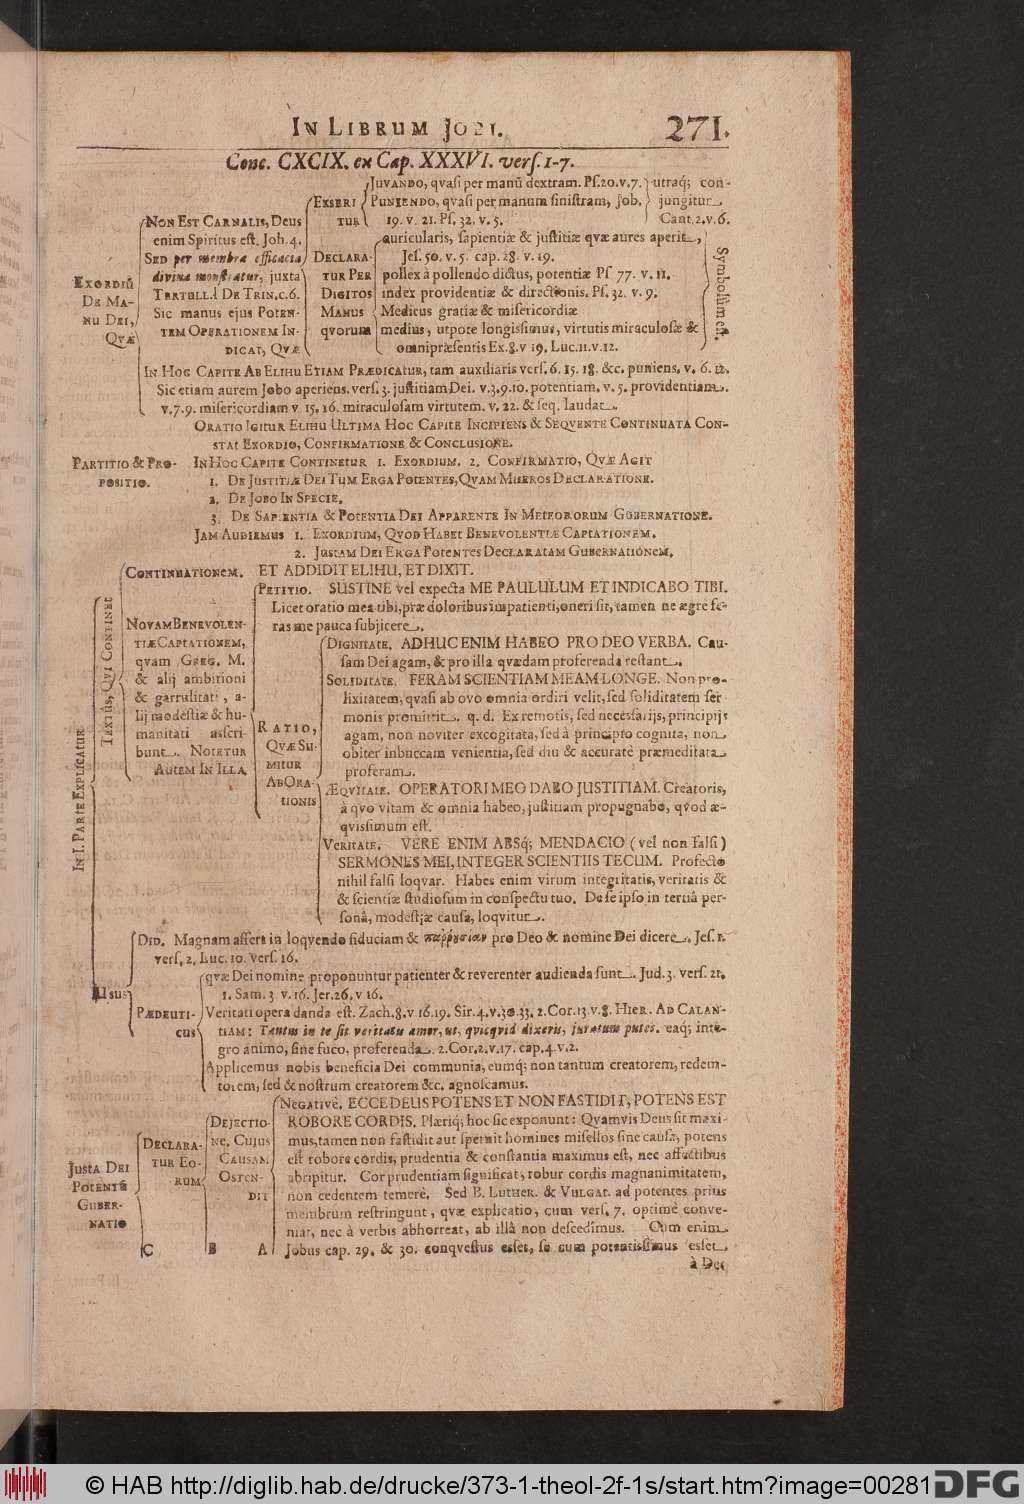 IN LIBRUM JOBI. 271.
Conc. CXCIX. ex Cap. XXXVI. verſ. 1-7.
EXORDIŨ
DE MA-
NU DEI,
QVÆ
NON EST CARNALIS, Deus
enim Spiritus eſt. Joh. 4.
SED per membra efficacia
divina monſtratur, juxta
TERTULL. DE TRIN. c. 6.
Sic manus ejus POTEN-
TEM OPERATIONEM IN-
DICAT, QVÆ
EXSERI
TUR
JUVANDO, qvaſi per manũ dextram. Pſ. 20. v. 7.
PUNIENDO, qvaſi per manum ſiniſtram, Job.
19. v. 21. Pſ. 32. v. 5.
utraq; con-
jungitur
Cant. 2. v. 6.
DECLARA-
TUR PER
DIGITOS
MANUS
qvorum
auricularis, ſapientiæ & juſtitiæ qvæ aures aperit,
Jeſ. 50. v. 5. cap. 28. v. 19.
pollex à pollendo dictus, potentiæ Pſ 77. v. 11.
index providentiæ & directionis. Pſ. 32. v. 9.
Medicus gratiæ & miſericordiæ
medius, utpote longiſsimus, virtutis miraculoſæ &
omnipræſentis Ex. 8. v 19. Luc. 11. v. 12.
Symbolũm eſt.
IN HOC CAPITE AB ELIHU ETIAM PRÆDICATUR, tam auxiliaris verſ. 6. 15. 18. &c. puniens, v. 6. 12.
Sic etiam aurem Jobo aperiens. verſ. 3. juſtitiam Dei. v. 3. 9. 10. potentiam. v. 5. providentiam.
v. 7. 9. miſericordiam v. 15. 16. miraculoſam virtutem. v. 22. & ſeq. laudat.
PARTITIO & PRO-
POSITIO.
ORATIO IGITUR ELIHU ULTIMA HOC CAPITE INCIPIENS & SEQVENTE CONTINUATA CON-
STAT EXORDIO, CONFIRMATIONE & CONCLUSIONE.
IN HOC CAPITE CONTINETUR 1. EXORDIUM. 2. CONFIRMATIO, QVÆ AGIT
1. DE JUSTITIÆ DEI TUM ERGA POTENTES, QVAM MISEROS DECLARATIONE.
2. DE JOBO IN SPECIE.
3. DE SAPIENTIA & POTENTIA DEI APPARENTE IN METEORORUM GUBERNATIONE.
JAM AUDIEMUS 1. EXORDIUM, QVOD HABET BENEVOLENTIÆ CAPTATIONEM.
2. JUSTAM DEI ERGA POTENTES DECLARATAM GUBERNATIONEM.
IN I. PARTE EXPLICATUR
TEXTUS, QVI CONTINET
CONTINUATIONEM. ET ADDIDIT ELIHU, ET DIXIT.
NOVAM BENEVOLEN-
TIÆ CAPTATIONEM,
qvam GREG. M.
& alij ambitioni
& garrulitati, a-
lij modeſtiæ & hu-
manitati aſſcri-
bunt. NOTETUR
AUTEM IN ILLA,
PETITIO. SUSTINE vel expecta ME PAULULUM ET INDICABO TIBI.
Licet oratio mea tibi, præ doloribus impatienti, oneri ſit, tamen ne ægre fe-
ras me pauca ſubjicere.
RATIO,
QVÆ SU-
MITUR
AB ORA-
TIONIS
DIGNITATE. ADHUC ENIM HABEO PRO DEO VERBA. Cau-
ſam Dei agam, & pro illa qvædam proferenda reſtant.
SOLIDITATE. FERAM SCIENTIAM MEAM LONGE. Non pro-
lixitatem, qvaſi ab ovo omnia ordiri velit, ſed ſoliditatem ſer
monis promittit. q. d. Ex remotis, ſed neceſſarijs, principijs
agam, non noviter excogitata, ſed à principio cognita, non
obiter in buccam venientia, ſed diu & accuratè præmeditata
proferam.
ÆQVITATE. OPERATORI MEO DABO JUSTITIAM. Creatoris,
à qvo vitam & omnia habeo, juſtitiam propugnabo, qvod æ-
qviſsimum eſt.
VERITATE. VERE ENIM ABSQ; MENDACIO (vel non falſi)
SERMONES MEI, INTEGER SCIENTIIS TECUM. Profecto
nihil falſi loqvar. Habes enim virum integritatis, veritatis &
& ſcientiæ ſtudioſum in conſpectu tuo. De ſe ipſo in tertiâ per-
ſonâ, modeſtiæ cauſa, loqvitur.
Uſus
DID. Magnam affert in loqvendo fiduciam & παῤῥησίαν pro Deo & nomine Dei dicere. Jeſ. 1.
verſ. 2. Luc. 10. verſ. 16.
PÆDEUTI-
cus
qvæ Dei nomine proponuntur patienter & reverenter audienda ſunt. Jud. 3. verſ. 21.
1. Sam. 3 v. 16. Jer. 26. v 16.
Veritati opera danda eſt. Zach. 8. v 16. 19. Sir. 4. v. 30. 33. 2. Cor. 13. v. 8. HIER. AD CALAN-
TIAM: Tantus in te ſit veritatis amor, ut, qvicqvid dixeris, juratum putes. eaq; inte-
gro animo, ſine fuco, proferenda. 2. Cor. 2. v. 17. cap. 4. v. 2.
Applicemus nobis beneficia Dei communia, eumq; non tantum creatorem, redem-
torem, ſed & noſtrum creatorem &c. agnoſcamus.
JUSTA DEI
POTENTŨ
GUBER-
NATIO
DECLARA-
TUR EO-
RUM
DEJECTIO-
NE, CUJUS
CAUSAM
OSTEN-
DIT
NEGATIVÈ. ECCE DEUS POTENS ET NON FASTIDIT, POTENS EST
ROBORE CORDIS. Pleriq; hoc ſic exponunt: Qvamvis Deus ſit maxi-
mus, tamen non faſtidit aut ſpernit homines miſellos ſine cauſa, potens
eſt robore cordis, prudentia & conſtantia maximus eſt, nec affectibus
abripitur. Cor prudentiam ſignificat, robur cordis magnanimitatem,
non cedentem temerè. Sed B. LUTHER. & VULGAT. ad potentes prius
membrum reſtringunt, qvæ explicatio, cum verſ. 7. optimè conve-
niat, nec à verbis abhorreat, ab illâ non deſcedimus. Cùm enim
C B A Jobus cap. 29. & 30. conqveſtus eſſet, ſe cum potentiſſimus eſſet
à Deo
© HAB http://diglib.hab.de/drucke/373-1-theol-2f-1s/start.htm?image=00281
DFG